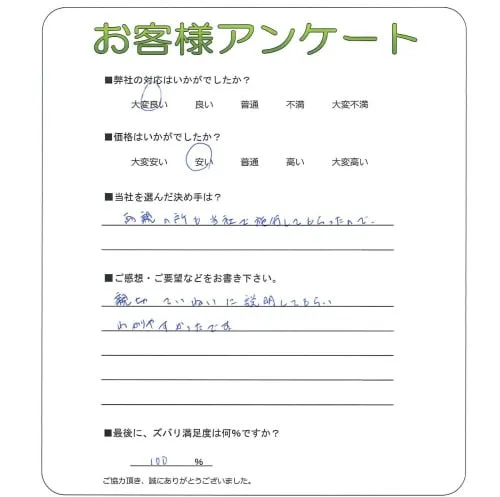 お客様アンケート
■弊社の対応はいかがでしたか？
大変良い 良い 普通 不満 大変不満
■価格はいかがでしたか？
大変安い 安い 普通 高い 大変高い
■当社を選んだ決め手は？
両親の所も当社で施工してもらったので、
■ご感想・ご要望などをお書き下さい。
親切 ていねいに説明してもらい
わかりやすかったです
■最後に、ズバリ満足度は何%ですか？
100 %
ご協力頂き、誠にありがとうございました。